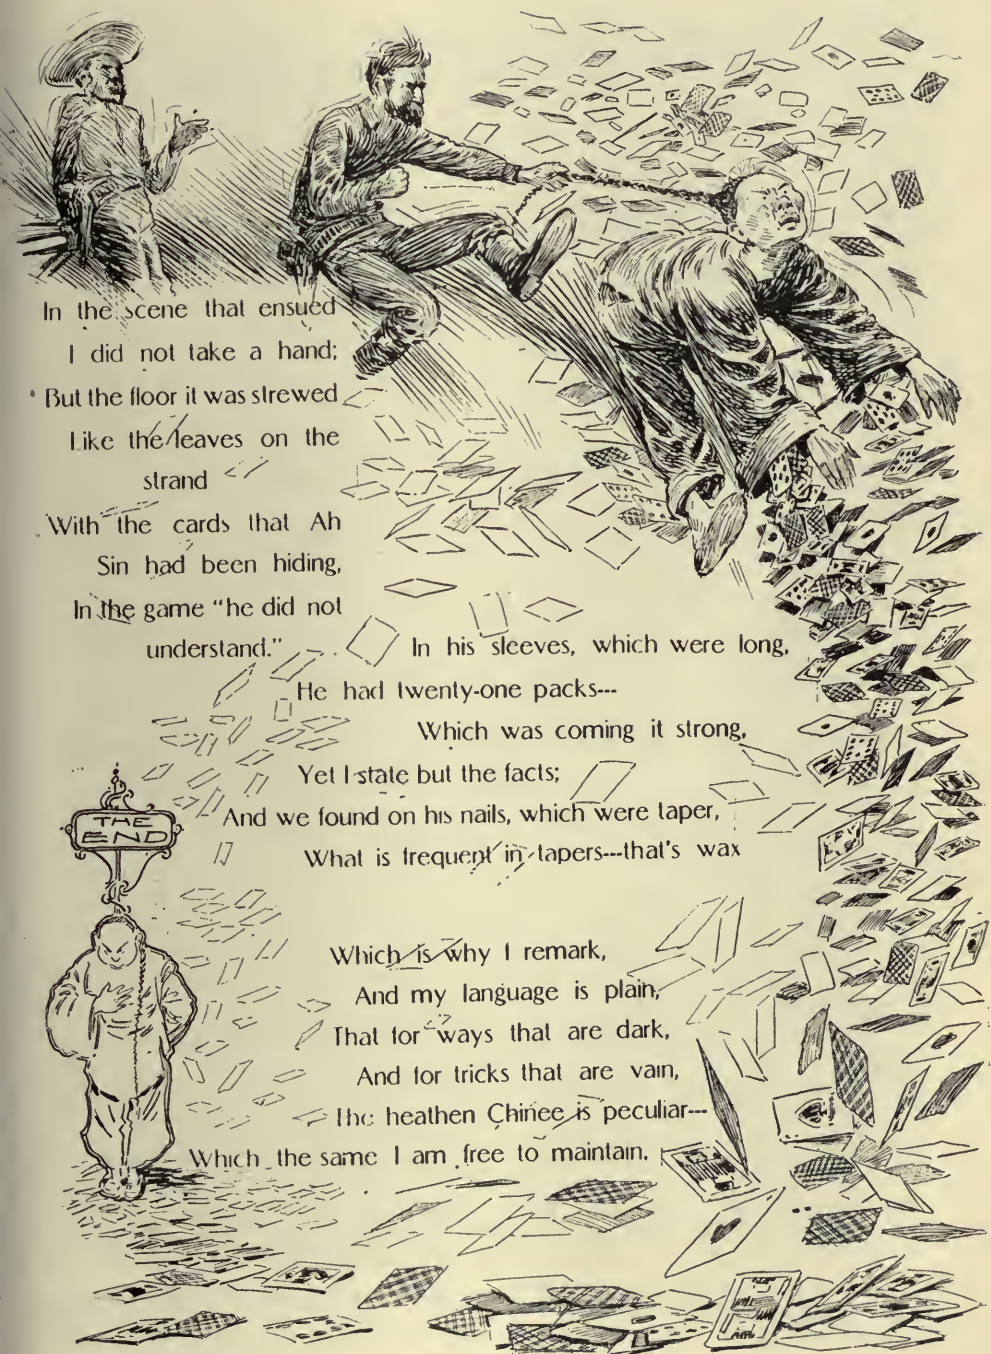 In the scene that ensued
I did not take a hand;
But the floor it was strewed
Like the leaves on the
strand
With the cards that Ah
Sin had been hiding,
In the game "he did not
understand."
In his sleeves, which were long,
He had twenty-one packs---
Which was coming it strong,
Yet I state but the facts;
And we found on his nails, which were taper,
What is frequent in tapers---that's wax
THE
END
Which is why I remark,
And my language is plain,
That for ways that are dark,
And for tricks that are vain,
The heathen Chinee is peculiar---
Which the same I am free to maintain.